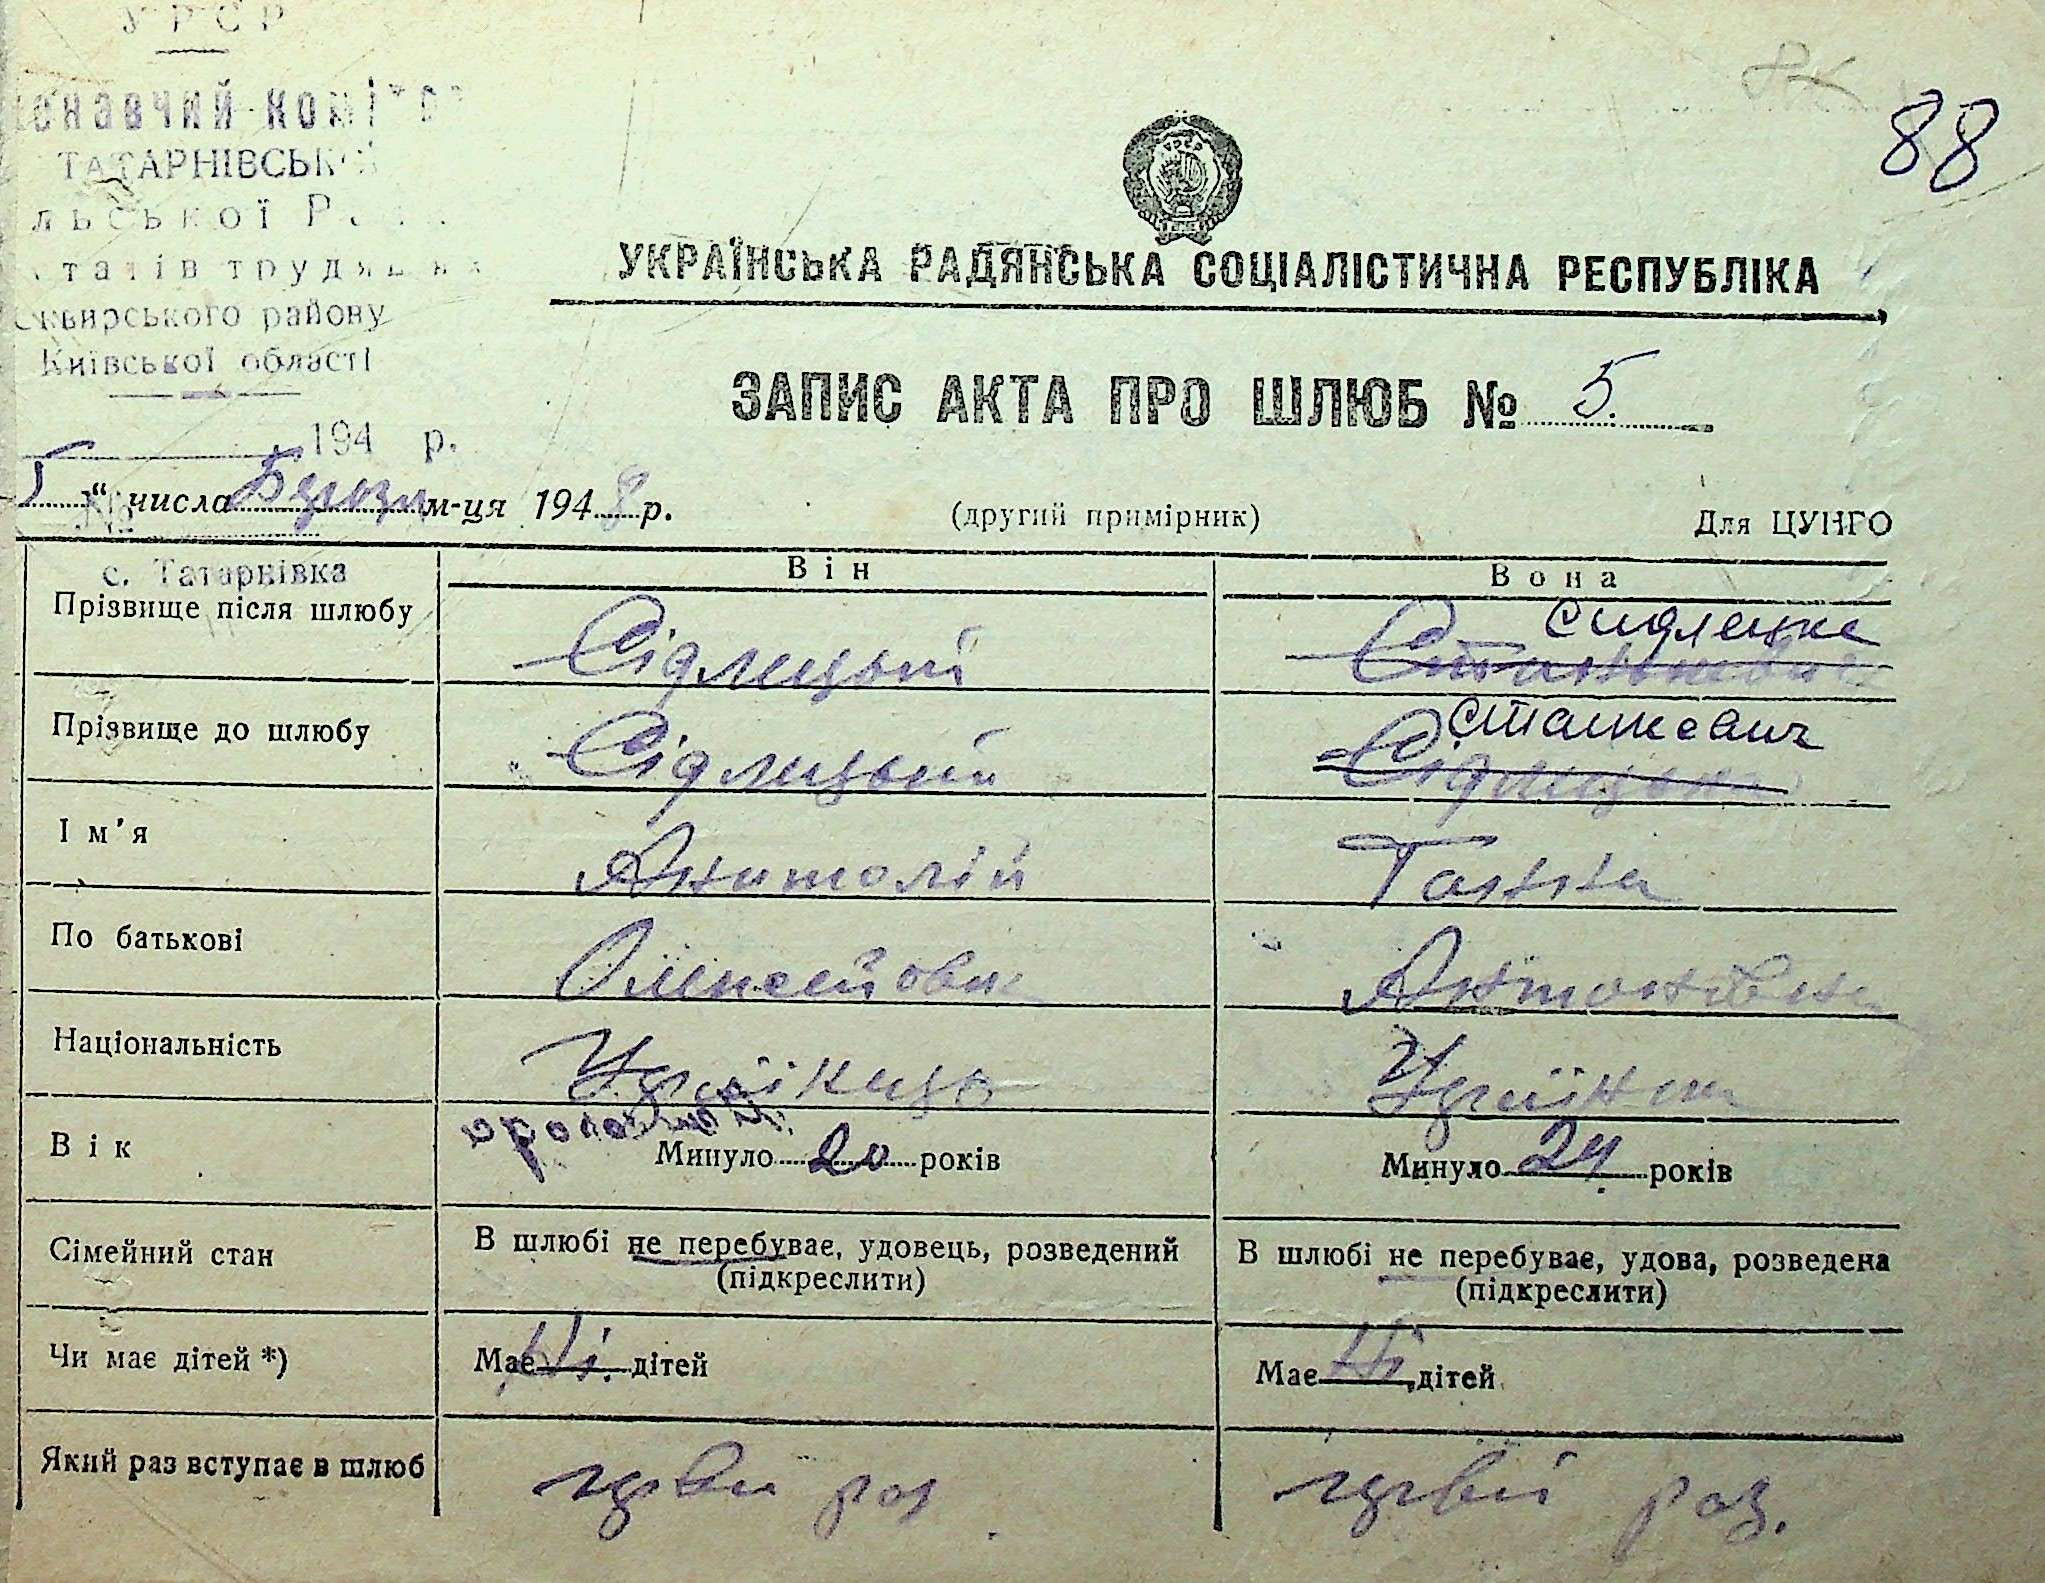 У Р С Р
88
ТАТАРНІВСЬКОЇ
трудящих
Сквирського району
Київської області
УКРАЇНСЬКА РАДЯНСЬКА СОЦІАЛІСТИЧНА РЕСПУБЛІКА
ЗАПИС АКТА ПРО ШЛЮБ № 5.
194 р.
числа м-ця 1948 р. (другий примірник) Для ЦУНГО
№
с. Татарнівка
Він Вона
Прізвище після шлюбу Сідлицький Сидлецке
Прізвище до шлюбу Сідлицький Сташкевич Сідлицька
Ім'я Анатолій Ганна
По батькові Олексейович Антонівна
Національність Українець Українка
Вік Минуло 20 років Минуло 24 років
Сімейний стан В шлюбі не перебуває, удовець, розведений В шлюбі не перебуває, удова, розведена
(підкреслити) (підкреслити)
Чи має дітей *) Має Ні. дітей Має Ні. дітей
Який раз вступає в шлюб перви раз первій раз.